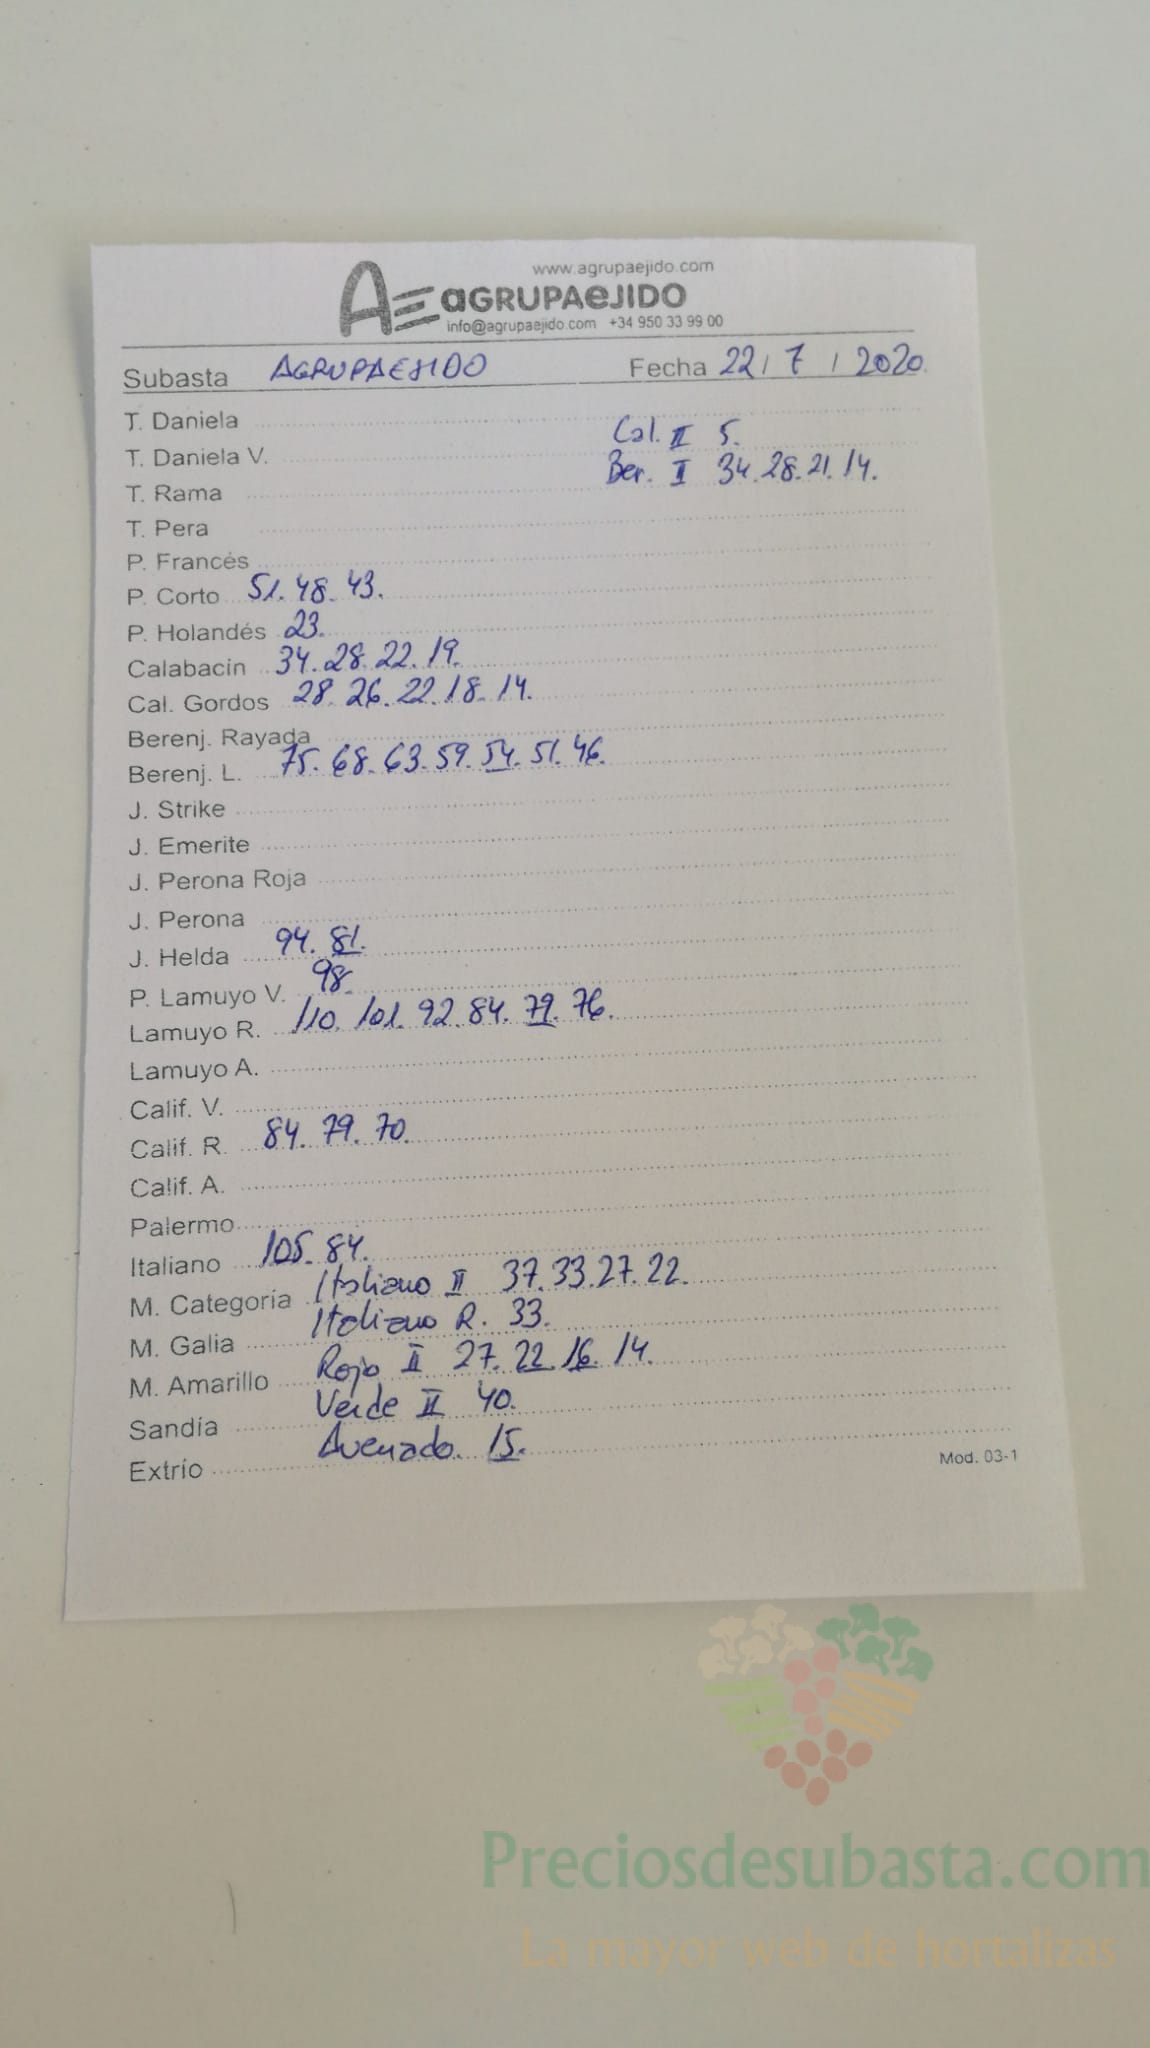 www.agrupaejido.com
AE aGRUPAeJIDO
info@agrupaejido.com +34 950 33 99 00
Subasta AGRUPAEJIDO Fecha 22 / 7 / 2020
T. Daniela
Cal. II 5.
T. Daniela V.
Ber. II 34. 28. 21. 14.
T. Rama
T. Pera
P. Francés
P. Corto 51. 48. 43.
P. Holandés 23.
Calabacin 34. 28. 22. 19.
Cal. Gordos 28. 26. 22. 18. 14.
Berenj. Rayada
Berenj. L. 75. 68. 63. 59. 54. 51. 46.
J. Strike
J. Emerite
J. Perona Roja
J. Perona
J. Helda 94. 81.
P. Lamuyo V. 98.
Lamuyo R. 110. 101. 92. 84. 79. 76.
Lamuyo A.
Calif. V.
Calif. R. 84. 79. 70.
Calif. A.
Palermo
Italiano 105. 84.
M. Categoría Italiano II 37. 33. 27. 22.
Italiano R. 33.
M. Galia
M. Amarillo Rojo II 27. 22. 16. 14.
Verde II 40.
Sandía
Avenado. 15.
Extrío
Mod. 03-1
Preciosdesubasta.com
La mayor web de hortalizas